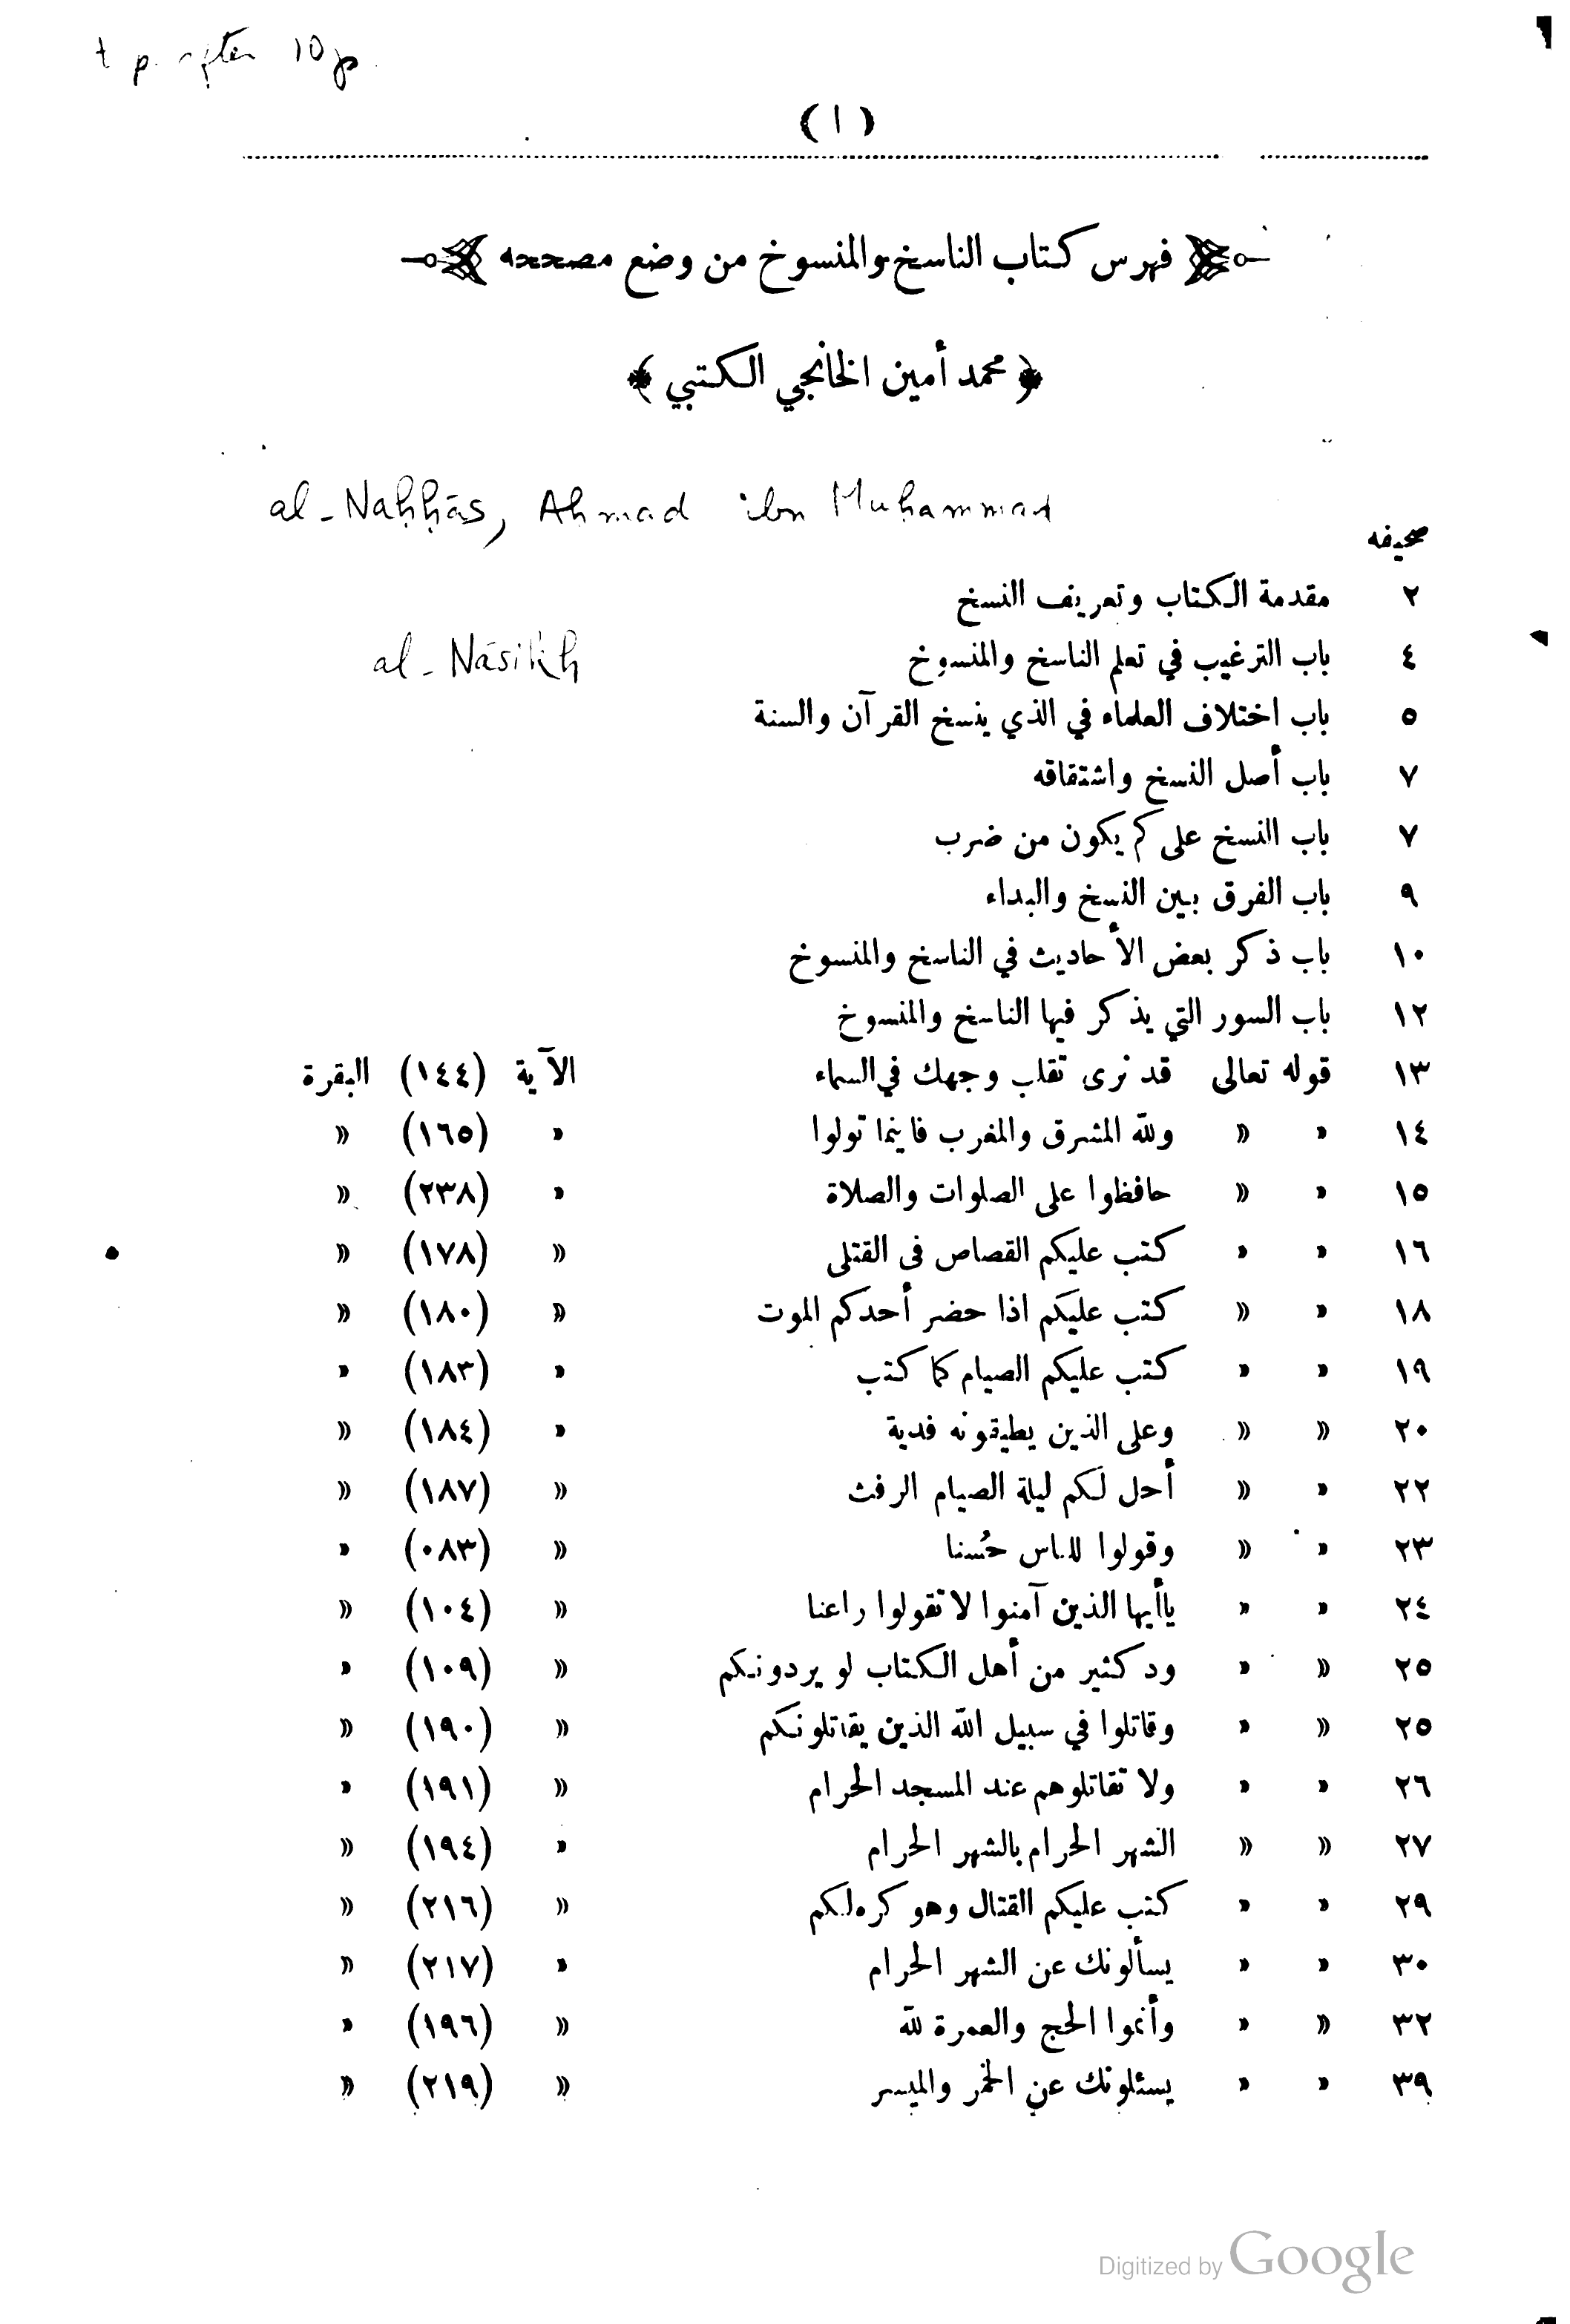 t p. after 10 p.
( ١ )
فهرس كتاب الناسخ والمنسوخ من وضع مصححه
﴿ محمد أمين الخانجي الكتبي ﴾
al-Naḥḥās, Aḥmad ibn Muḥammad
صحيفه
٢ مقدمة الكتاب وتعريف النسخ
٤ باب الترغيب في تعلم الناسخ والمنسوخ
al-Nāsikh
٥ باب اختلاف العلماء في الذي ينسخ القرآن والسنة
٧ باب أصل النسخ واشتقاقه
٧ باب النسخ على كم يكون من ضرب
٩ باب الفرق بين النسخ والبداء
١٠ باب ذكر بعض الأحاديث في الناسخ والمنسوخ
١٢ باب السور التي يذكر فيها الناسخ والمنسوخ
١٣ قوله تعالى قد نرى تقلب وجهك في السماء الآية (١٤٤) البقرة
١٤ » » ولله المشرق والمغرب فاينما تولوا » (١٦٥) »
١٥ » » حافظوا على الصلوات والصلاة » (٢٣٨) »
١٦ » » كتب عليكم القصاص فى القتلى » (١٧٨) »
١٨ » » كتب عليكم اذا حضر أحدكم الموت » (١٨٠) »
١٩ » » كتب عليكم الصيام كما كتب » (١٨٣) »
٢٠ » » وعلى الذين يطيقونه فدية » (١٨٤) »
٢٢ » » أحل لكم ليلة الصيام الرفث » (١٨٧) »
٢٣ » » وقولوا للناس حُسنا » (٠٨٣) »
٢٤ » » ياأيها الذين آمنوا لا تقولوا راعنا » (١٠٤) »
٢٥ » » ود كثير من أهل الكتاب لو يردونكم » (١٠٩) »
٢٥ » » وقاتلوا في سبيل الله الذين يقاتلونكم » (١٩٠) »
٢٦ » » ولا تقاتلوهم عند المسجد الحرام » (١٩١) »
٢٧ » » الشهر الحرام بالشهر الحرام » (١٩٤) »
٢٩ » » كتب عليكم القتال وهو كره لكم » (٢١٦) »
٣٠ » » يسألونك عن الشهر الحرام » (٢١٧) »
٣٢ » » وأتموا الحج والعمرة لله » (١٩٦) »
٣٩ » » يسئلونك عن الخمر والميسر » (٢١٩) »
Digitized by Google